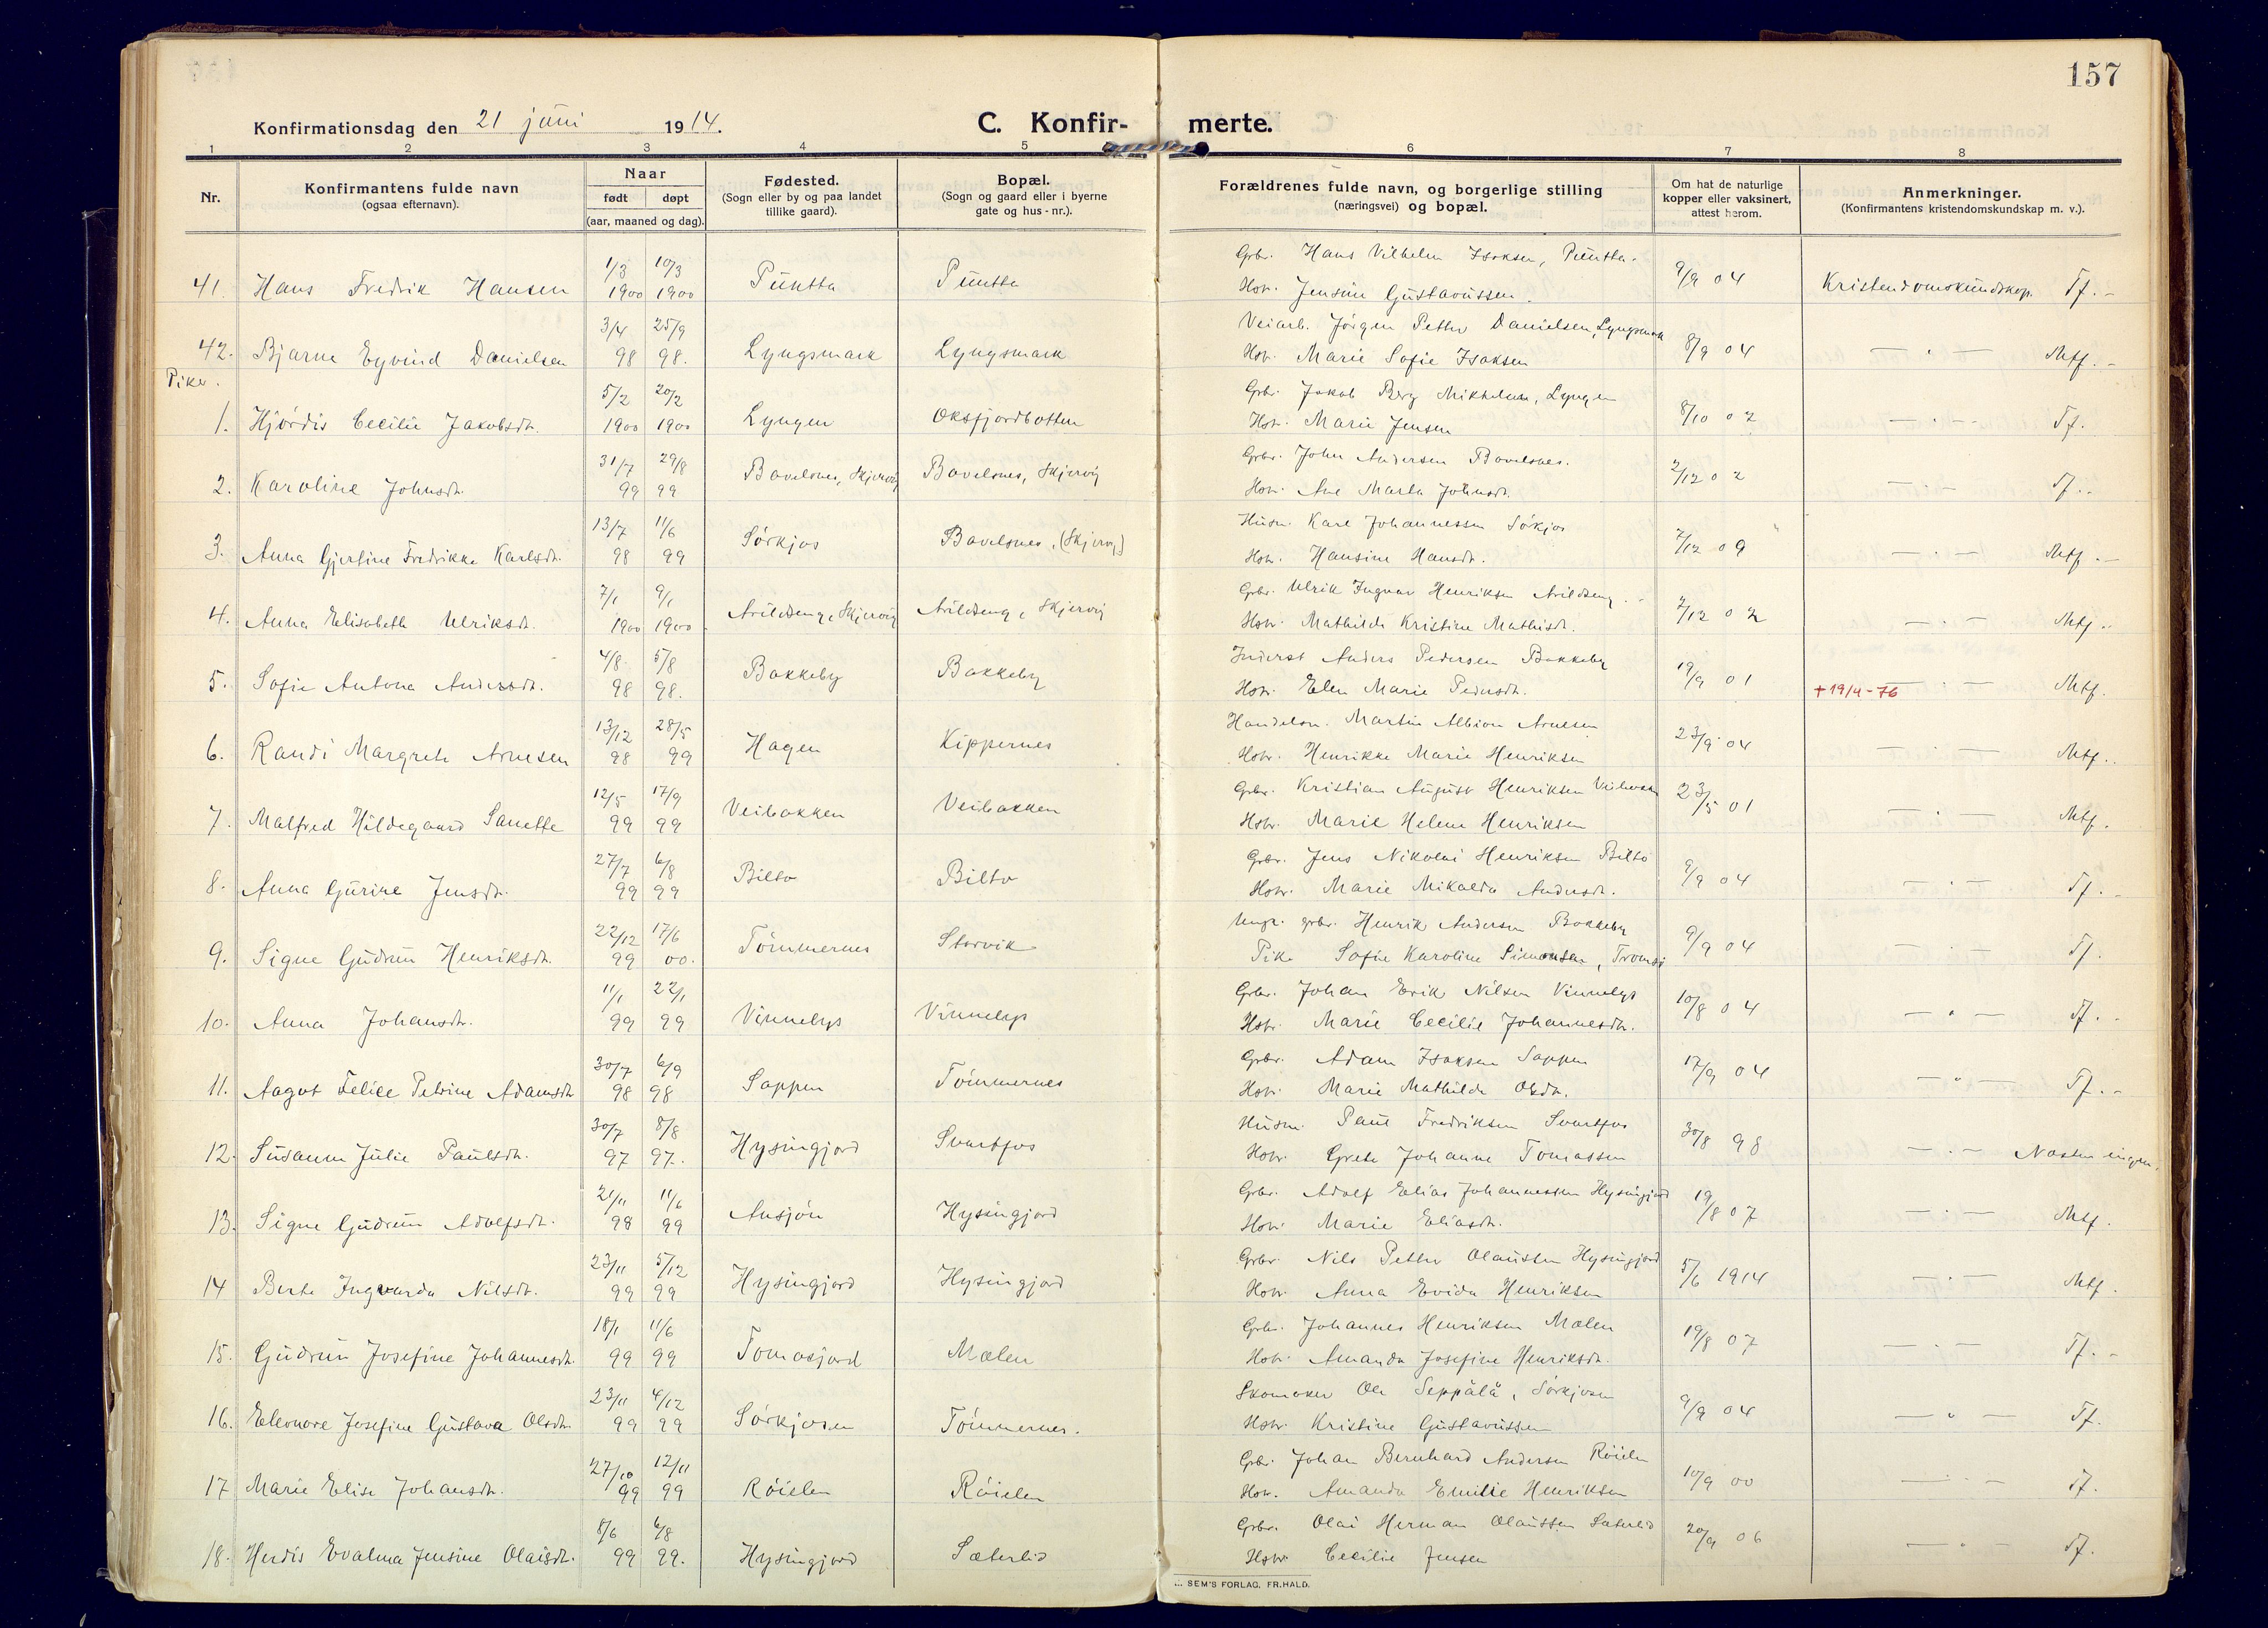 157
Konfirmationsdag den 21 juni 1914.
C. Konfirmerte.
1 2 3 4 5 6 7 8
Nr.
Konfirmantens fulde navn
(ogsaa efternavn).
Naar
født døpt
(aar, maaned og dag).
Fødested.
(Sogn eller by og paa landet
tillike gaard).
Bopæl.
(Sogn og gaard eller i byerne
gate og hus-nr.).
Forældrenes fulde navn, og borgerlige stilling
(næringsvei) og bopæl.
Om hat de naturlige
kopper eller vaksinert,
attest herom.
Anmerkninger.
(Konfirmantens kristendomskundskap m. v.).
1/3 10/3 Grbr. Hans Vilhelm Isaksen, Puntta.
41. Hans Fredrik Hansen 1900 1900 Puntta Puntta Hstr. Jensine Gustavussen. 9/9 04 Kristendomskundskap. Tf. -
3/4 25/9 Veiarb. Jørgen Petter Danielsen, Lyngsmark
42. Bjarne Eyvind Danielsen 98 98. Lyngsmark Lyngsmark Hstr. Marie Sofie Isaksen 8/9 04 — " — Mtf. -
Piker.
5/2 20/2 Grbr. Jakob Berg Mikkelsen, Lyngen
1. Hjørdis Cecilie Jakobsdt. 1900 1900 Lyngen Oksfjordbotten Hstr. Marie Jensen 8/10 02 — " — Tf.
31/7 29/8 Grbr. John Andersen Bavelsnes.
2. Karoline Johnsdt. 99 99 Bavelsnes, Skjervøy Bavelsnes, Skjervøy Hstr. Ane Marta Johnsdt. 2/12 02 — " — Tf. -
13/7 11/6 Husm. Karl Johannessen Sørkjos
3. Anna Gjertine Fredrikke Karlsdt. 98 99 Sørkjos Bavelsnes, (Skjervøy) Hstr. Hansine Hansdt. 7/12 09 — " — Mtf. -
7/1 9/1 Grbr. Ulrik Ingvar Henriksen Arildseng.
4. Anna Elisabeth Ulriksdt. 1900 1900 Arildseng, Skjervøy Arildseng, Skjervøy Hstr. Mathilde Kristine Mathisdt. 2/12 02 — " — Mtf. -
4/8 5/8 Inderst Anders Pedersen Bakkeby
5. Sofie Antona Andersdt. 98 98. Bakkeby Bakkeby Hstr. Elen Marie Pedersdt. 19/9 01 +19/4-76 — " — Mtf.
13/12 28/5 Handelsm. Martin Albion Arnesen
6. Randi Margrete Arnesen 98 99 Hagen Kippernes Hstr. Henrikke Marie Henriksen 23/9 04 — " — Mtf.
12/5 17/9 Grbr. Kristian August Henriksen
7. Malfred Hildegaard Sanette 99 99 Veibakken Veibakken Hstr. Marie Helene Henriksen 23/5 01 — " — Mtf.
27/7 6/8 Grbr. Jens Nikolai Henriksen Bilto
8. Anna Gurine Jensdt. 99 99 Bilto Bilto Hstr. Marie Mikalda Andersdt. 9/9 04 — " — Tf. -
22/12 17/6 Ungk. grbr. Henrik Andersen Bakkeby
9. Signe Gudrun Henriksdt. 99 00. Tømmernes Storvik Pike Sofie Karoline Simonsen, Tromsø 9/9 04 — " — Tf.
11/1 22/1 Grbr. Johan Erik Nilsen Vinnelys
10. Anna Johansdt. 99 99 Vinnelys Vinnelys Hstr. Marie Cecilie Johannesdt. 10/8 04 — " — Tf. -
30/7 6/9 Grbr. Adam Isaksen Sappen
11. Aagot Felice Petrine Adamsdt 98 98 Sappen Tømmernes Hstr. Marie Mathilde Olsdt. 17/9 04 — " — Tf. -
30/7 8/8 Husm. Paul Fredriksen Svartfos
12. Susanne Julie Paulsdt. 97 97. Hysingjord Svartfos Hstr. Grete Johanne Tomassen 30/8 98 — " — Næsten ingen.
21/11 11/6 Grbr. Adolf Elias Johannessen Hysingjord
13. Signe Gudrun Adolfsdt. 98 99 Ansjøn Hysingjord Hstr. Marie Eliasdt. 19/8 07 — " — Mtf.
23/11 5/12 Grbr. Nils Petter Olaussen Hysingjord
14 Berte Ingvarda Nilsdt. 99 99 Hysingjord Hysingjord Hstr. Anna Evida Henriksen 5/6 1914 — " — Mtf.
18/1 11/6 Grbr. Johannes Henriksen Mælen
15. Gudrun Josefine Johannesdt. 99 99 Tomasjord Mælen Hstr. Amanda Josefine Henriksdt. 19/8 07 — " — Tf. -
23/11 4/12 Skomaker Ole Seppälä, Sørkjosen
16. Eleonore Josefine Gustava Olsdt. 99 99 Sørkjosen Tømmernes. Hstr. Kristine Gustavussen 9/9 04 — " — Tf.
27/10 12/11 Grbr. Johan Bernhard Andersen Røielen
17 Marie Elise Johansdt. 99 99 Røielen Røielen Hstr. Amanda Emilie Henriksen 10/9 00 — " — Tf.
8/6 6/8 Grbr. Olai Herman Olaussen Sæterlid
18. Herdis Evalma Jensine Olaisdt. 99 99. Hysingjord Sæterlid Hstr. Cecilie Jensen 20/9 06 — " — Tf.
SEM'S FORLAG, FR.HALD.